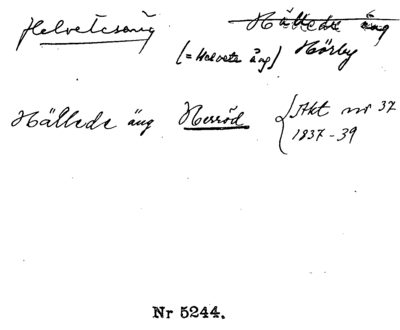 Helvetesäng
Hällede äng
(= Helvete äng) Hörby
Hällede äng Herröd { Akt nr 37
1837-39
Nr 5244.